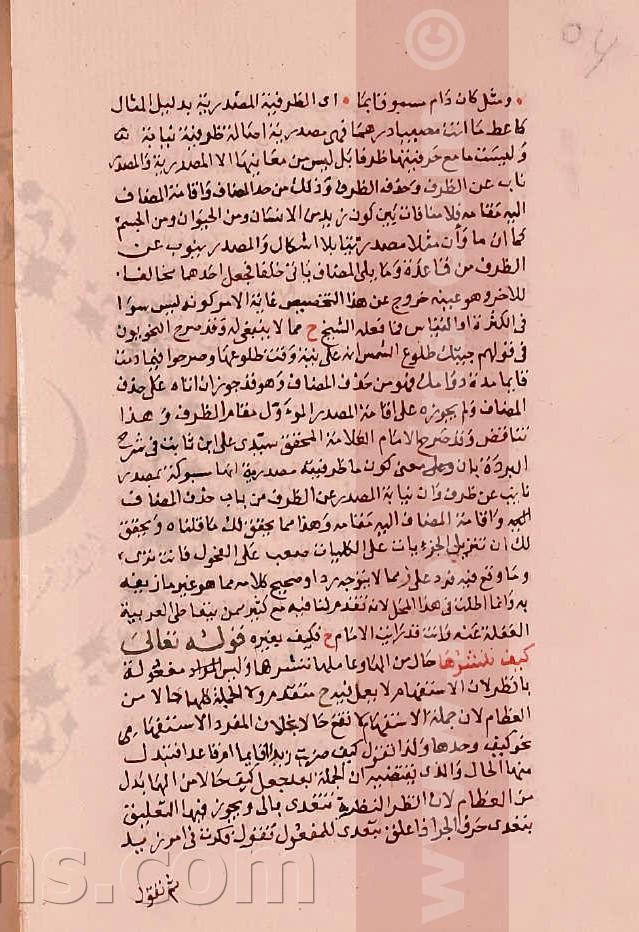 ٥٧
ومثل كان دام سموقايما اى الظرفية المصدرية بدليل المثال
كاعط ما انت مصيبا درهما فهى مصدرية اصالة ظرفية نيابة
وليست ما مع حرفيتها ظرفا بل ليس من معانيها الا المصدرية والمصدر
ناب عن الظرف وحذف الظرف وذلك من حذف المضاف واقامة المضاف
اليه مقامه فلا منافاة بين كون زيد من الانسان ومن الحيوان ومن الجسم
كما ان ما وأن مثلا مصدر نيا بلا اشكال والمصدر ينوب عن
الظرف من قاعدة وما يلى المضاف ياتى خلفا فجعل احدها مخالفا
للآخر وهو عينه خروج عن هذا التخصيص غاية الامر كونه ليس سوا
فى الكثرة او القياس فما فعله الشيخ ح مما لا ينبغى له وقد صرح النحويون
فى قولهم جيتك طلوع الشمس انه على نية وقت طلوعها وصرحوا فيما دمت
قايما مدة دوامك فهو من حذف المضاف وهو قد جوز ان اناه على حذف
المضاف ولم يجوزه على اقامة المصدر الموءول مقام الظرف وهذا
تناقض وقد صرح الامام العلامة المحقق سيدى على ابن ثابت فى شرح
البردة بان معنى كون ما ظرفية مصدرية انها مسبوكة بمصدر
نايب عن ظرف وان نيابة المصدر عن الظرف من باب حذف المضاف
اليه واقامة المضاف اليه مقامه وهذا مما يحقق لك ما قلناه ويحقق
لك ان تنزيل الجزءيات على الكليات صعب على الفحول فانت ترى
وما وقع فيه فرد على ز مما لا يتوجه رد او صحيح كلامه مما هو غير ما زيفه
به وانما اطلت فى هذا المحل لانه تقدم لنا فيه مع كثير ممن يتعاطى العربية
الغفلة عنه وانت قد رايت الامام ح فكيف بغيره قوله تعالى
كيف ننشزها حال من الها وعاملها ننشزها وليس مفعولة
بانظر لان الاستفهام لا يعمل فيه متقدم ولا الجملة كلها حالا من
العظام لان جملة الاستفهام لا تقع حالا بخلاف المفرد الاستفهامى
نحو كيف وحدها ولذا تقول كيف ضربت زيدا اقايما ام قاعدا فتبدل
منها الحال والذى يقتضيه ان الجملة بعد جعل كيف حالا من الها بدل
من العظام لان النظر النظرية تتعدى بالى ويجوز فيها التعليق
يتعدى حرف الجر اذا علق بتعدى للمفعول تقول فكرت فى امر زيد
ثم تقول
ns.com
©
w